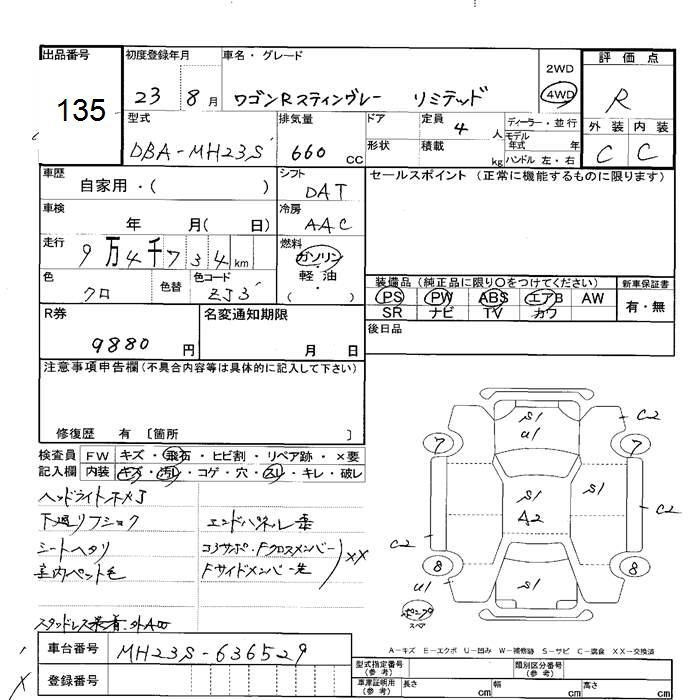 出品番号
135
初度登録年月
23 8月
車名・グレード
ワゴンRスティングレー リミテッド
2WD
4WD
評価点
R
外装 内装
C C
型式
DBA-MH23S
排気量
660 CC
ドア
形状
定員
4 人
積載
kg
ディーラー・並行
モデル年式 年
ハンドル 左・右
車歴
自家用・( )
シフト
DAT
セールスポイント (正常に機能するものに限ります)
車検
年 月( 日)
冷房
AAC
走行
9万4千734km
燃料
ガソリン
軽油
・
( )
色
クロ
色替
色コード
ZJ3
装備品 (純正品に限り○をつけてください)
PS PW ABS エアB AW
SR ナビ TV カワ
新車保証書
有・無
後日品
R券
9880 円
名変通知期限
月 日
注意事項申告欄 (不具合内容等は具体的に記入して下さい)
修復歴 有 〔箇所 〕
検査員記入欄
FW キズ・飛石・ヒビ割・リペア跡・×要
内装 キズ・汚レ・コゲ・穴・スレ・キレ・破レ
下廻リフショク
シートヘタリ
エンドパネル
コアサポ・Fクロスメンバー
Fサイドメンバー
XX
車台番号
MH23S-636529
登録番号
S1
U1
C2
7
7
S1
A2
S1
C2
C2
8
8
U1
S1
スペア
A-キズ E-エクボ U-凹み W-補修跡 S-サビ C-腐食 XX-交換済
型式指定番号
(参考)
類別区分番号
(参考)
車庫証明用
(参考)
長さ cm
幅 cm
高さ cm